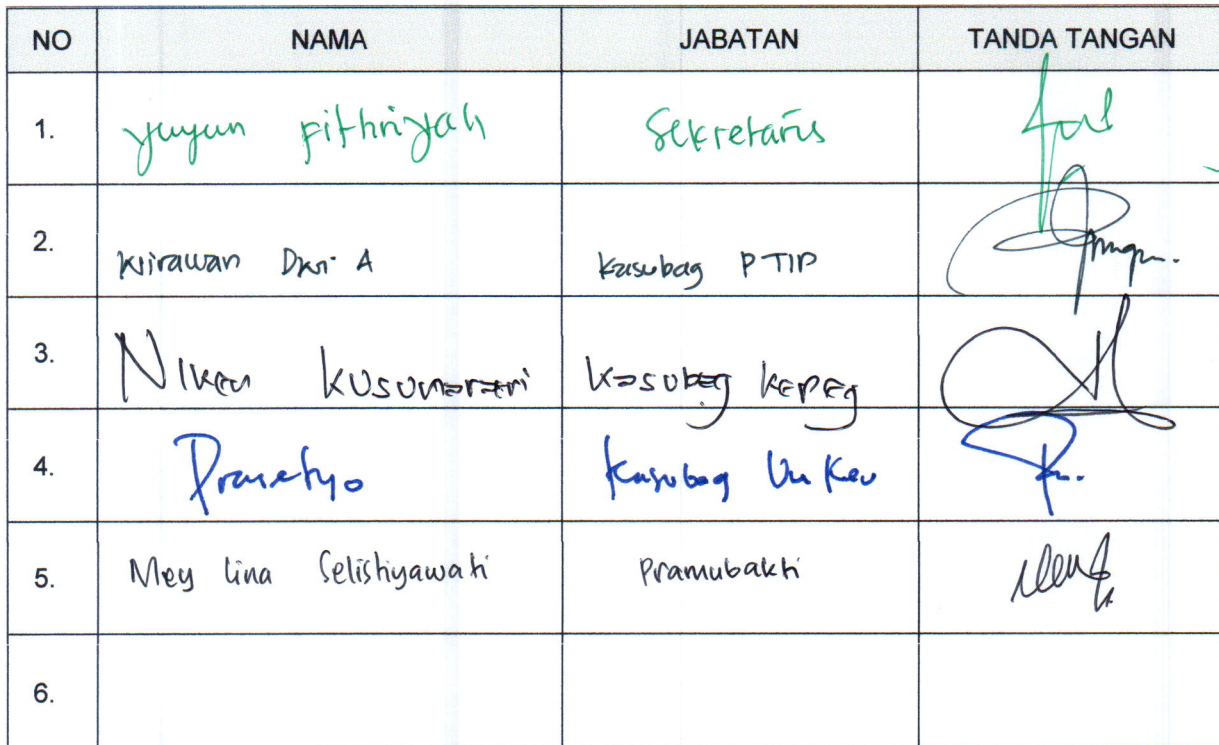 NO NAMA JABATAN TANDA TANGAN
1. Yuyun Fithriyah Sekretaris
2. Wirawan Dwi A Kasubag PTIP
3. Niken Kusumarani Kasubag Kepeg
4. Prasetyo Kasubag Um Keu
5. Mey Lina Selishyawati Pramubakti
6.